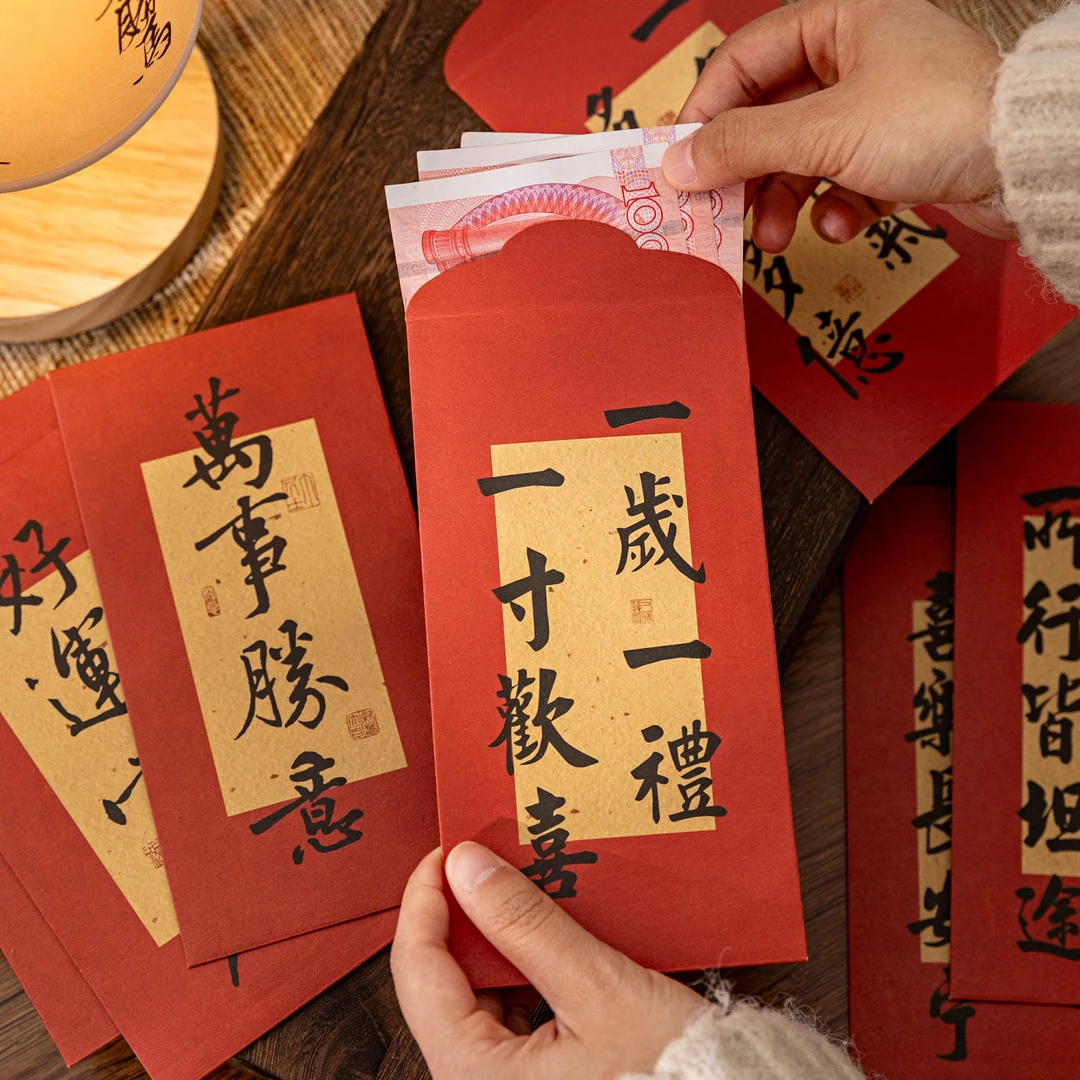 100
一歲一禮
一寸歡喜
萬事勝意
好運
氣
多億
所行皆坦途
喜樂長安宁